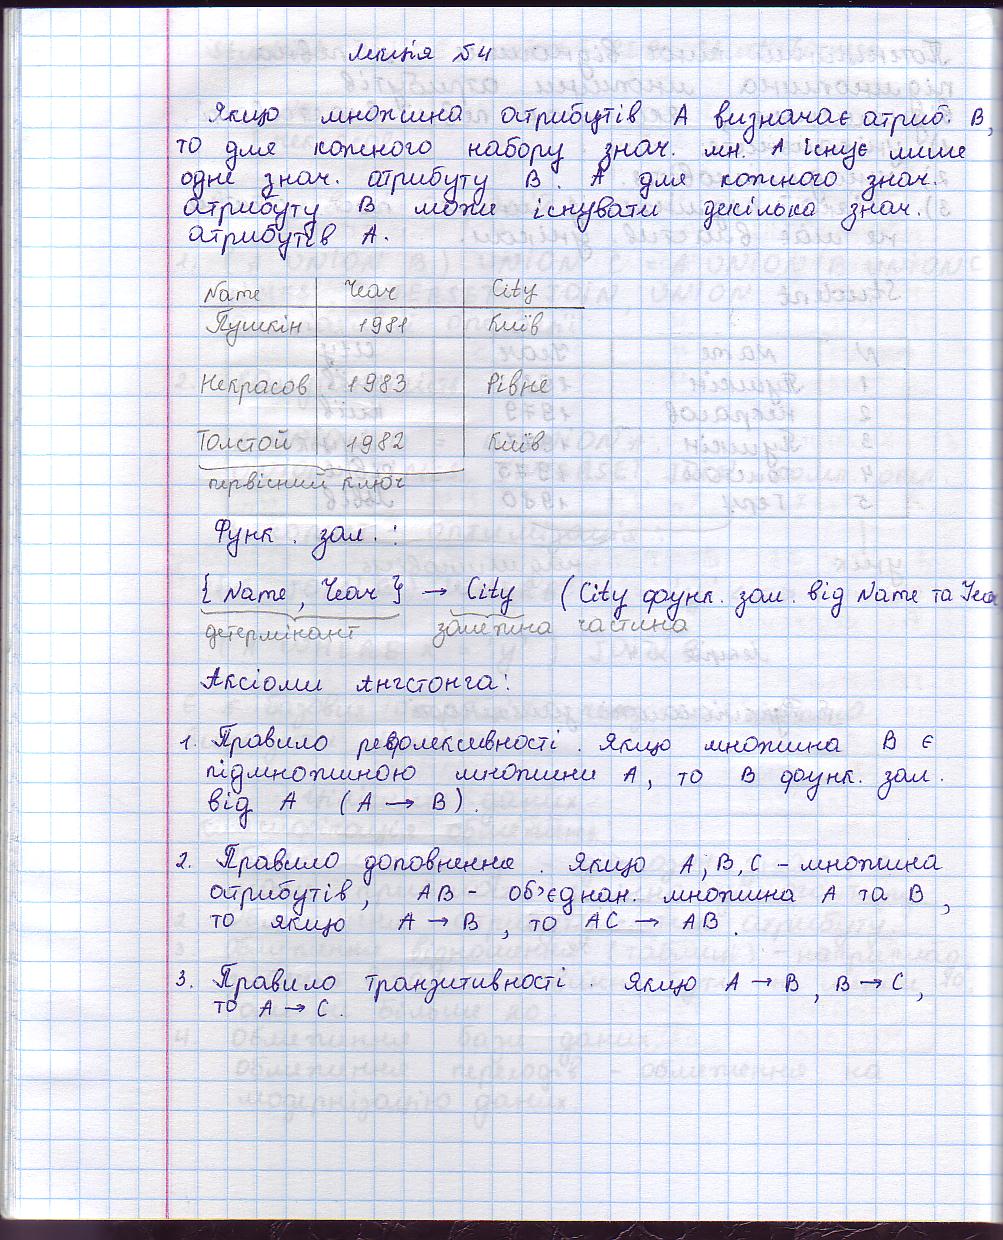 Лекція №4
Якщо множина атрибутів A визначає атриб. B,
то для кожного набору знач. мн. A існує лише
одне знач. атрибуту B. А для кожного знач.
атрибуту B може існувати декілька знач.
атрибутів A.
Name Year City
Пушкін 1981 Київ
Некрасов 1983 Рівне
Толстой 1982 Київ
первісний ключ
Функ. зал.:
{Name, Year} → City (City функ. зал. від Name та Yea
детермінант залежна частина
Аксіоми Ангстонга:
1. Правило рефлексивності. Якщо множина B є
підмножиною множини A, то B функ. зал.
від A (A → B).
2. Правило доповнення. Якщо A, B, C - множина
атрибутів, AB - об'єднан. множина A та B,
то якщо A → B, то AC → AB.
3. Правило транзитивності. Якщо A → B, B → C,
то A → C.